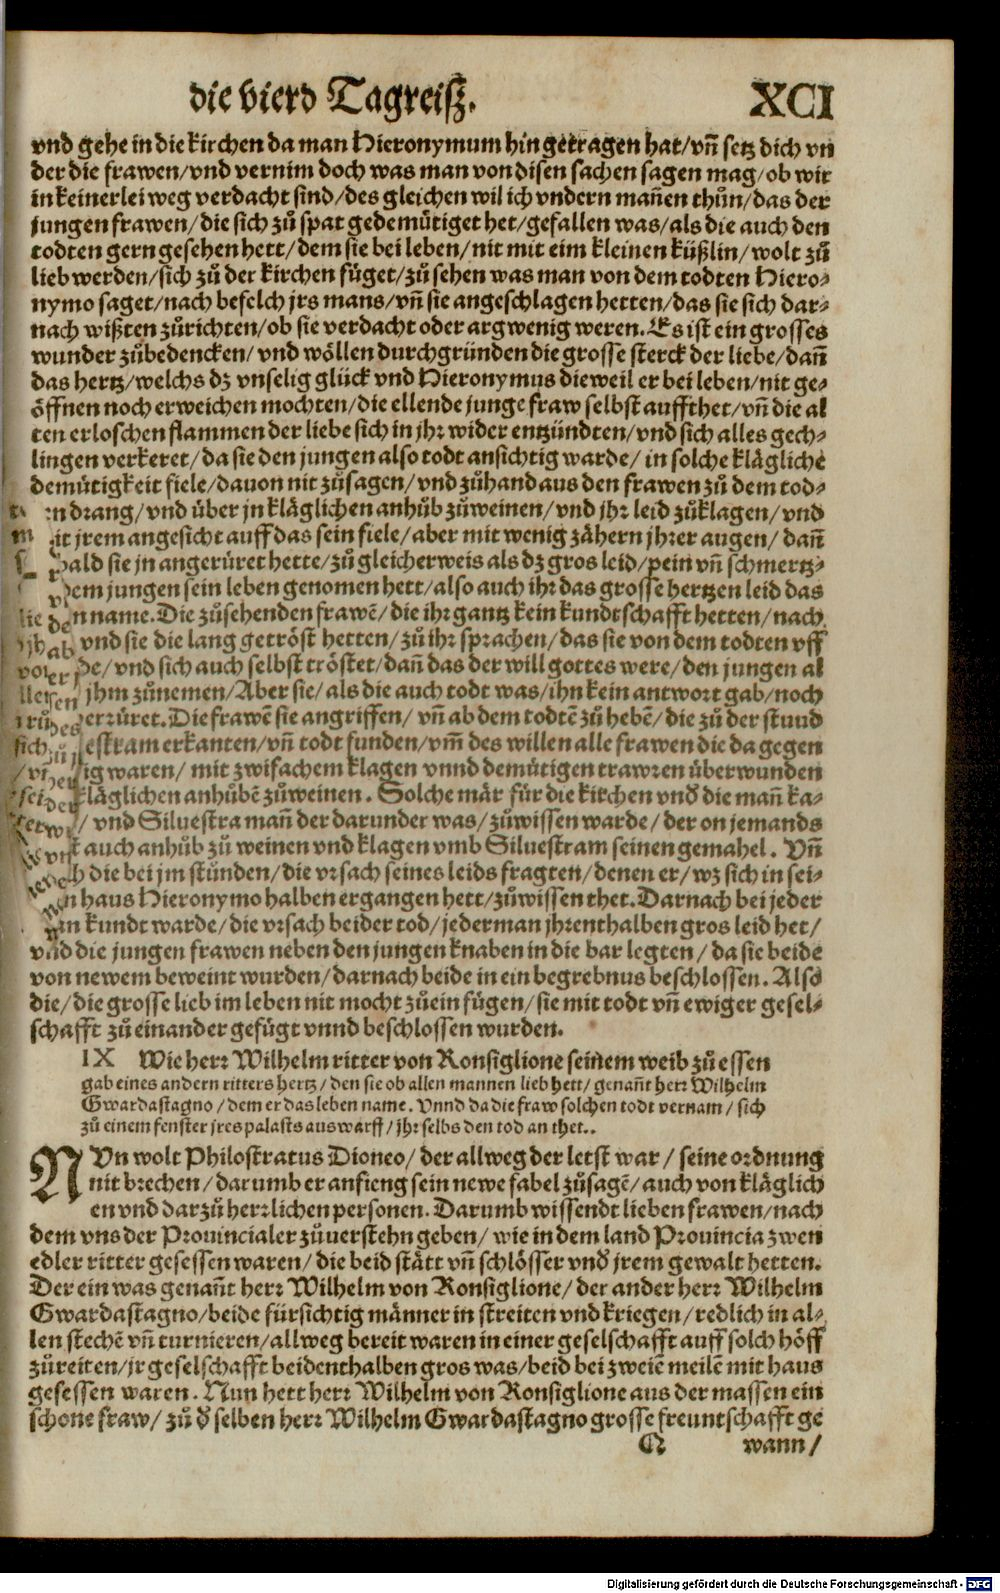 die vierd Tagreisz. XCI
vnd gehe in die kirchen da man Hieronymum hin getragen hat/vñ setz dich vn
der die frawen/vnd vernim doch was man von disen sachen sagen mag/ob wir
in keinerlei weg verdacht sind/des gleichen wil ich vndern mañen thůn/das der
jungen frawen/die sich zů spat gedemütiget het/gefallen was/als die auch den
todten gern gesehen hett/dem sie bei leben/nit mit eim kleinen küßlin/wolt zů
lieb werden/sich zů der kirchen füget/zů sehen was man von dem todten Hiero-
nymo saget/nach befelch jrs mans/vñ sie angeschlagen hetten/das sie sich dar-
nach wißten zůrichten/ob sie verdacht oder argwenig weren. Es ist ein grosses
wunder zůbedencken/vnd wöllen durchgründen die grosse sterck der liebe/dañ
das hertz/welchs dz vnselig glück vnd Hieronymus dieweil er bei leben/nit ge-
öffnen noch erweichen mochten/die ellende junge fraw selbst auffthet/vñ die al
ten erloschen flammen der liebe sich in jhr wider entzündten/vnd sich alles gech-
lingen verkeret/da sie den jungen also todt ansichtig warde/in solche klägliche
demütigkeit fiele/dauon nit zůsagen/vnd zůhand aus den frawen zů dem tod-
n drang/vnd über jn kläglichen anhůb zůweinen/vnd jhr leid zůklagen/vnd
it jrem angesicht auff das sein fiele/aber mit wenig zähern jhrer augen/dañ
bald sie jn angerüret hette/zů gleicherweis als dz gros leid/pein vñ schmertz-
dem jungen sein leben genomen hett/also auch ihr das grosse hertzen leid das
n name. Die zůsehenden frawẽ/die ihr gantz kein kundtschafft hetten/nach
vnd sie die lang getröst hetten/zů ihr sprachen/das sie von dem todten vff
de/vnd sich auch selbst tröstet/dañ das der will gottes were/den jungen al
ihm zůnemen/Aber sie/als die auch todt was/ihn kein antwort gab/noch
gerrüret. Die frawẽ sie angriffen/vñ ab dem todtẽ zů hebẽ/die zů der stund
estram erkanten/vñ todt funden/vm̃ des willen alle frawen die da gegen
ig waren/mit zwifachem klagen vnnd demütigen trawren überwunden
kläglichen anhůbẽ zůweinen. Solche mär für die kirchen vnd die mañ ka-
/vnd Siluestra mañ der darunder was/zůwissen warde/der on jemands
auch anhůb zů weinen vnd klagen vmb Siluestram seinen gemahel. Vñ
h die bei jm stůnden/die vrsach seines leids fragten/denen er/wz sich in sei-
n haus Hieronymo halben ergangen hett/zůwissen thet. Darnach bei jeder
n kundt warde/die vrsach beider tod/jederman jhrenthalben gros leid het/
vnd die jungen frawen neben den jungen knaben in die bar legten/da sie beide
von newem beweint wurden/darnach beide in ein begrebnus beschlossen. Also
die/die grosse lieb im leben nit mocht zůein fügen/sie mit todt vñ ewiger gesel-
schafft zů einander gefügt vnnd beschlossen wurden.
IX Wie herr Wilhelm ritter von Ronsiglione seinem weib zů essen
gab eines andern ritters hertz/den sie ob allen mannen lieb hett/genañt herr Wilhelm
Gwardastagno/dem er das leben name. Vnnd da die fraw solchen todt vernam/sich
zů einem fenster jres palasts auswarff/jhr selbs den tod an thet..
NVn wolt Philostratus Dioneo/der allweg der letst war/seine ordnung
nit brechen/darumb er anfieng sein newe fabel zůsagẽ/auch von kläglich
en vnd darzů herrlichen personen. Darumb wissendt lieben frawen/nach
dem vns der Prouincialer zůuerstehn geben/wie in dem land Prouincia zwen
edler ritter gesessen waren/die beid stätt vñ schlösser vnd jrem gewalt hetten.
Der ein was genañt herr Wilhelm von Ronsiglione/der ander herr Wilhelm
Gwardastagno/beide fürsichtig männer in streiten vnd kriegen/redlich in al-
len stechẽ vñ turnieren/allweg bereit waren in einer geselschafft auff solch höff
zůreiten/jr geselschafft beidenthalben gros was/beid bei zweiẽ meilẽ mit haus
gesessen waren. Nun hett herr Wilhelm von Ronsiglione aus der massen ein
schone fraw/zů d̓ selben herr Wilhelm Gwardastagno grosse freuntschafft ge
Q wann/
Digitalisierung gefördert durch die Deutsche Forschungsgemeinschaft - DFG